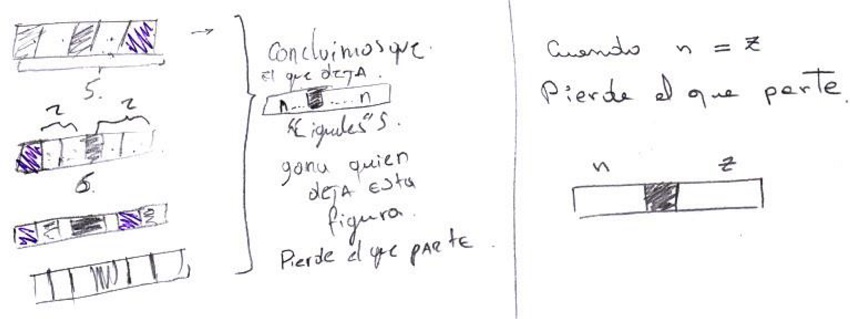 5.
2 2
6.
Concluimos que.
El que DEJA.
n... .... n
"Eigules" S.
gana quien
DEJA ESTA
figura.
Pierde el que PARTE.
Cuando n = z
Pierde el que parte.
n z